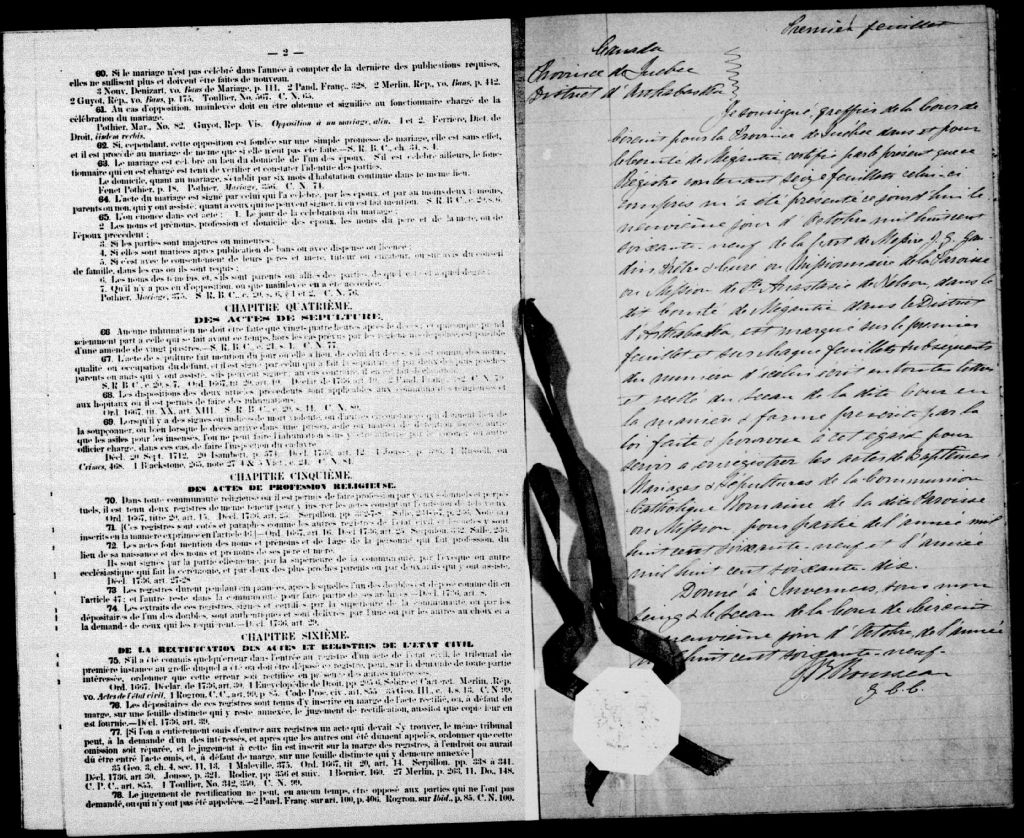 — 2 —
60. Si le mariage n'est pas célébré dans l'année à compter de la dernière des publications requises,
elles ne suffisent plus et doivent être faites de nouveau.
3 Nouv. Denizart, vo. Bans de Mariage, p. 111. 2 Pand. Franç., 328. 2 Merlin, Rep., vo. Bans, p. 412.
2 Guyot, Rép., vo. Bans, p. 175. Toullier, No. 567. C. N. 65.
61. Au cas d'opposition, mainlevée doit en être obtenue et signifiée au fonctionnaire chargé de la
célébration du mariage.
Pothier, Mar., No. 82. Guyot, Rep. Vis. Opposition à un mariage, alin. 1 et 2. Ferrière, Dict. de
Droit, iisdem verbis.
62. Si, cependant, cette opposition est fondée sur une simple promesse de mariage, elle est sans effet,
et il est procédé au mariage de même que si elle n'eut pas été faite.—S. R. B. C., ch. 34, s. 4.
63. Le mariage est célébré au lieu du domicile de l'un des époux. S'il est célébré ailleurs, le fonc-
tionnaire qui en est chargé est tenu de vérifier et constater l'identité des parties.
Le domicile, quant au mariage, s'établit par six mois d'habitation continue dans le même lieu.
Fenet Pothier, p. 18. Pothier, Mariage, 356. C. N. 74.
64. L'acte du mariage est signé par celui qui l'a célébré, par les époux, et par au moins deux témoins,
parents ou non, qui y ont assisté; quant à ceux qui ne peuvent signer, il en est fait mention. S. R. B. C., c. 20, s. 6.
65. L'on énonce dans cet acte: 1. Le jour de la célébration du mariage;
2. Les noms et prénoms, profession et domicile des époux, les noms du père et de la mère, ou de
l'époux précédent;
3. Si les parties sont majeures ou mineures;
4. Si elles sont mariées après publication de bans ou avec dispense ou licence;
5. Si c'est avec le consentement de leurs père et mère, tuteur ou curateur, ou sur avis du conseil
de famille, dans les cas où ils sont requis;
6. Les noms des témoins, et, s'ils sont parents ou alliés des parties, de quel côté et à quel degré;
7. Qu'il n'y a pas eu d'opposition, ou que mainlevée en a été accordée.
Pothier, Mariage, 375. S. R. B. C., c. 20, s. 6, § 1 et 2. C. N. 76.
CHAPITRE QUATRIÈME.
DES ACTES DE SÉPULTURE.
66. Aucune inhumation ne doit être faite que vingt-quatre heures après le décès; et quiconque prend
sciemment part à celle qui se fait avant ce temps, hors les cas prévus par les règlements de police, est passible
d'une amende de vingt piastres.—S. R. B. C., c. 21, s. 1. C. N. 77.
67. L'acte de sépulture fait mention du jour où elle a lieu, de celui du décès, s'il est connu, des noms,
qualité ou occupation du défunt, et il est signé par celui qui a fait la sépulture et par deux des plus proches
parents ou amis qui y ont assisté; s'ils peuvent signer; au cas contraire, il en est fait déclaration.
68. Les dispositions des deux articles précédents sont applicables aux communautés religieuses et
aux hôpitaux où il est permis de faire des inhumations.
Ord. 1667, tit. XX, art. XIII. S. R. B. C., c. 20, s. 11. C. N. 80.
69. Lorsqu'il y a des signes ou indices de mort violente, ou d'autres circonstances qui donnent lieu de
la soupçonner, ou bien lorsque le décès arrive dans une prison, asile ou maison de détention forcée, autre
que les asiles pour les insensés, l'on ne peut faire l'inhumation sans y être autorisé par le coroner ou autre
officier chargé, dans ces cas, de faire l'inspection du cadavre.
CHAPITRE CINQUIÈME.
DES ACTES DE PROFESSION RELIGIEUSE.
70. Dans toute communauté religieuse où il est permis de faire profession par vœux solennels et perpé-
tuels, il est tenu deux registres de même teneur pour y insérer les actes constatant l'émission de tels vœux.
71. [Ces registres sont cotés et paraphés comme les autres registres de l'état civil, et les actes y sont
inscrits en la manière exprimée en l'article 46.]
72. Les actes font mention des noms et prénoms et de l'âge de la personne qui fait profession, du
lieu de sa naissance et des noms et prénoms de ses père et mère.
Ils sont signés par la partie elle-même, par la supérieure de la communauté, par l'évêque ou autre
ecclésiastique qui fait la cérémonie, et par deux des plus proches parents ou par deux amis qui y ont assisté.
Décl. 1736, art. 27-28.
73. Les registres durent pendant cinq années, après lesquelles l'un des doubles est déposé comme dit en
l'article 47; et l'autre reste dans la communauté pour faire partie de ses archives.—Décl. 1736, art. 8.
74. Les extraits de ces registres, signés et certifiés par la supérieure de la communauté, ou par les
dépositaires de l'un des doubles, sont authentiques et sont délivrés par l'une ou par les autres au choix et à
la demande de ceux qui les requièrent.—Décl. 1736, art. 29.
CHAPITRE SIXIÈME.
DE LA RECTIFICATION DES ACTES ET REGISTRES DE L'ÉTAT CIVIL
75. S'il a été commis quelqu'erreur dans l'entrée au registre d'un acte de l'état civil, le tribunal de
première instance au greffe duquel a été ou doit être déposé ce registre, peut, sur la demande de toute partie
intéressée, ordonner que cette erreur soit rectifiée en présence des autres intéressés.
76. Les dépositaires de ces registres sont tenus d'y inscrire en marge de l'acte rectifié, ou, à défaut de
marge, sur une feuille distincte qui y reste annexée, le jugement de rectification, aussitôt que copie leur en
est fournie.—Décl. 1736, art. 30.
77. [Si l'on a entièrement omis d'entrer aux registres un acte qui devait s'y trouver, le même tribunal
peut, à la demande d'un des intéressés, et après que les autres ont été dûment appelés, ordonner que cette
omission soit réparée, et le jugement à cette fin est inscrit sur la marge des registres, à l'endroit où aurait
dû être entré l'acte omis, et, à défaut de marge, sur une feuille distincte qui y demeure annexée]
35 Geo. 3, ch. 4, sec. 11, 13. 1 Maleville, 375. Ord. 1667, tit. 20, art. 14. Serpillon, pp. 338 à 341.
Décl. 1736, art 30. Jousse, p. 321. Rodier, pp 356 et suiv. 1 Bornier, 160. 27 Merlin, p. 263, 11. Do., 148.
C. P. C., art. 855. 1 Toullier, No. 342, 350. C. N. 99.
78. Le jugement de rectification ne peut, en aucun temps, être opposé aux parties qui ne l'ont pas
demandé, ou qui n'y ont pas été appelées.—2 Pand. Franç sur art. 100, p. 406. Rogron, sur Ibid., p. 85. C. N. 100.
Premier feuillet
Canada
Province de Québec
District d'Arthabaska
Je soussigné, greffier de la Cour de
Circuit pour la Province de Québec dans et pour
le Comté de Mégantic certifie par le présent que ce
Régistre contenant seize feuillets celui-ci
compris m'a été présenté ce jourd'hui le
neuvième jour d'Octobre mil huit cent
soixante-neuf de la part de Messire J. G.
Prêtre & Curé ou Missionnaire de la Paroisse
ou Mission de Ste Anastasie de Nelson, dans le
dit Comté de Mégantic dans le District
d'Arthabaska, est marqué sur le premier
feuillet et sur chaque feuillets subséquents
du numéro d'icelui écrit en toutes lettres
et scellé du sceau de la dite Cour en
la manière & forme prescrite par la
loi faite & pourvue à cet égard pour
servir à enrégistrer les actes de Baptêmes
Mariages & Sépultures de la Communion
Catholique Romaine de la dite Paroisse
ou Mission pour partie de l'année mil
huit cent soixante-neuf et l'année
mil huit cent soixante-dix.
Donné à Inverness, sous mon
seing & le Sceau de la Cour de Circuit
neuvième jour d'Octobre de l'année
huit cent soixante-neuf.
Rousseau
G. C. C.